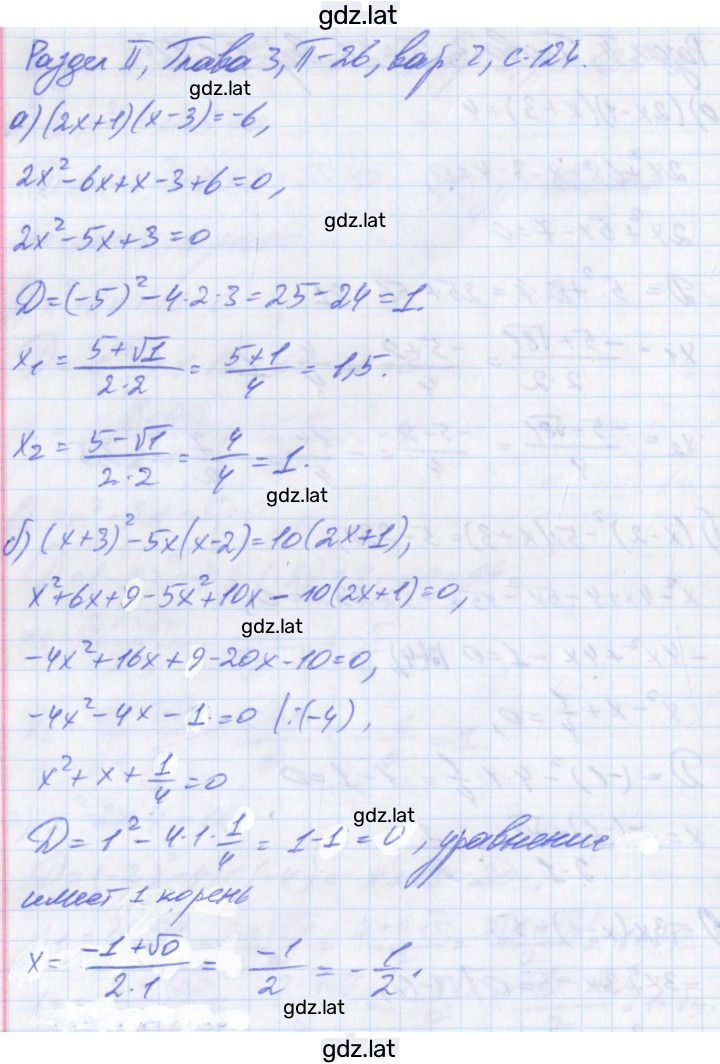 gdz.lat
Раздел II, Глава 3, П-26, вар. 2, с. 124.
gdz.lat
а) (2x+1)(x-3)=-6,
2x²-6x+x-3+6=0,
gdz.lat
2x²-5x+3=0
D=(-5)²-4·2·3=25-24=1.
x₁ = (5+√1)/(2·2) = (5+1)/4 = 1,5.
x₂ = (5-√1)/(2·2) = 4/4 = 1.
gdz.lat
б) (x+3)²-5x(x-2)=10(2x+1),
x²+6x+9-5x²+10x-10(2x+1)=0,
gdz.lat
-4x²+16x+9-20x-10=0,
-4x²-4x-1=0 |:(-4),
x²+x+1/4=0
gdz.lat
D=1²-4·1·1/4=1-1=0, уравнение
имеет 1 корень
x= (-1+√0)/(2·1) = -1/2 = -1/2.
gdz.lat
gdz.lat